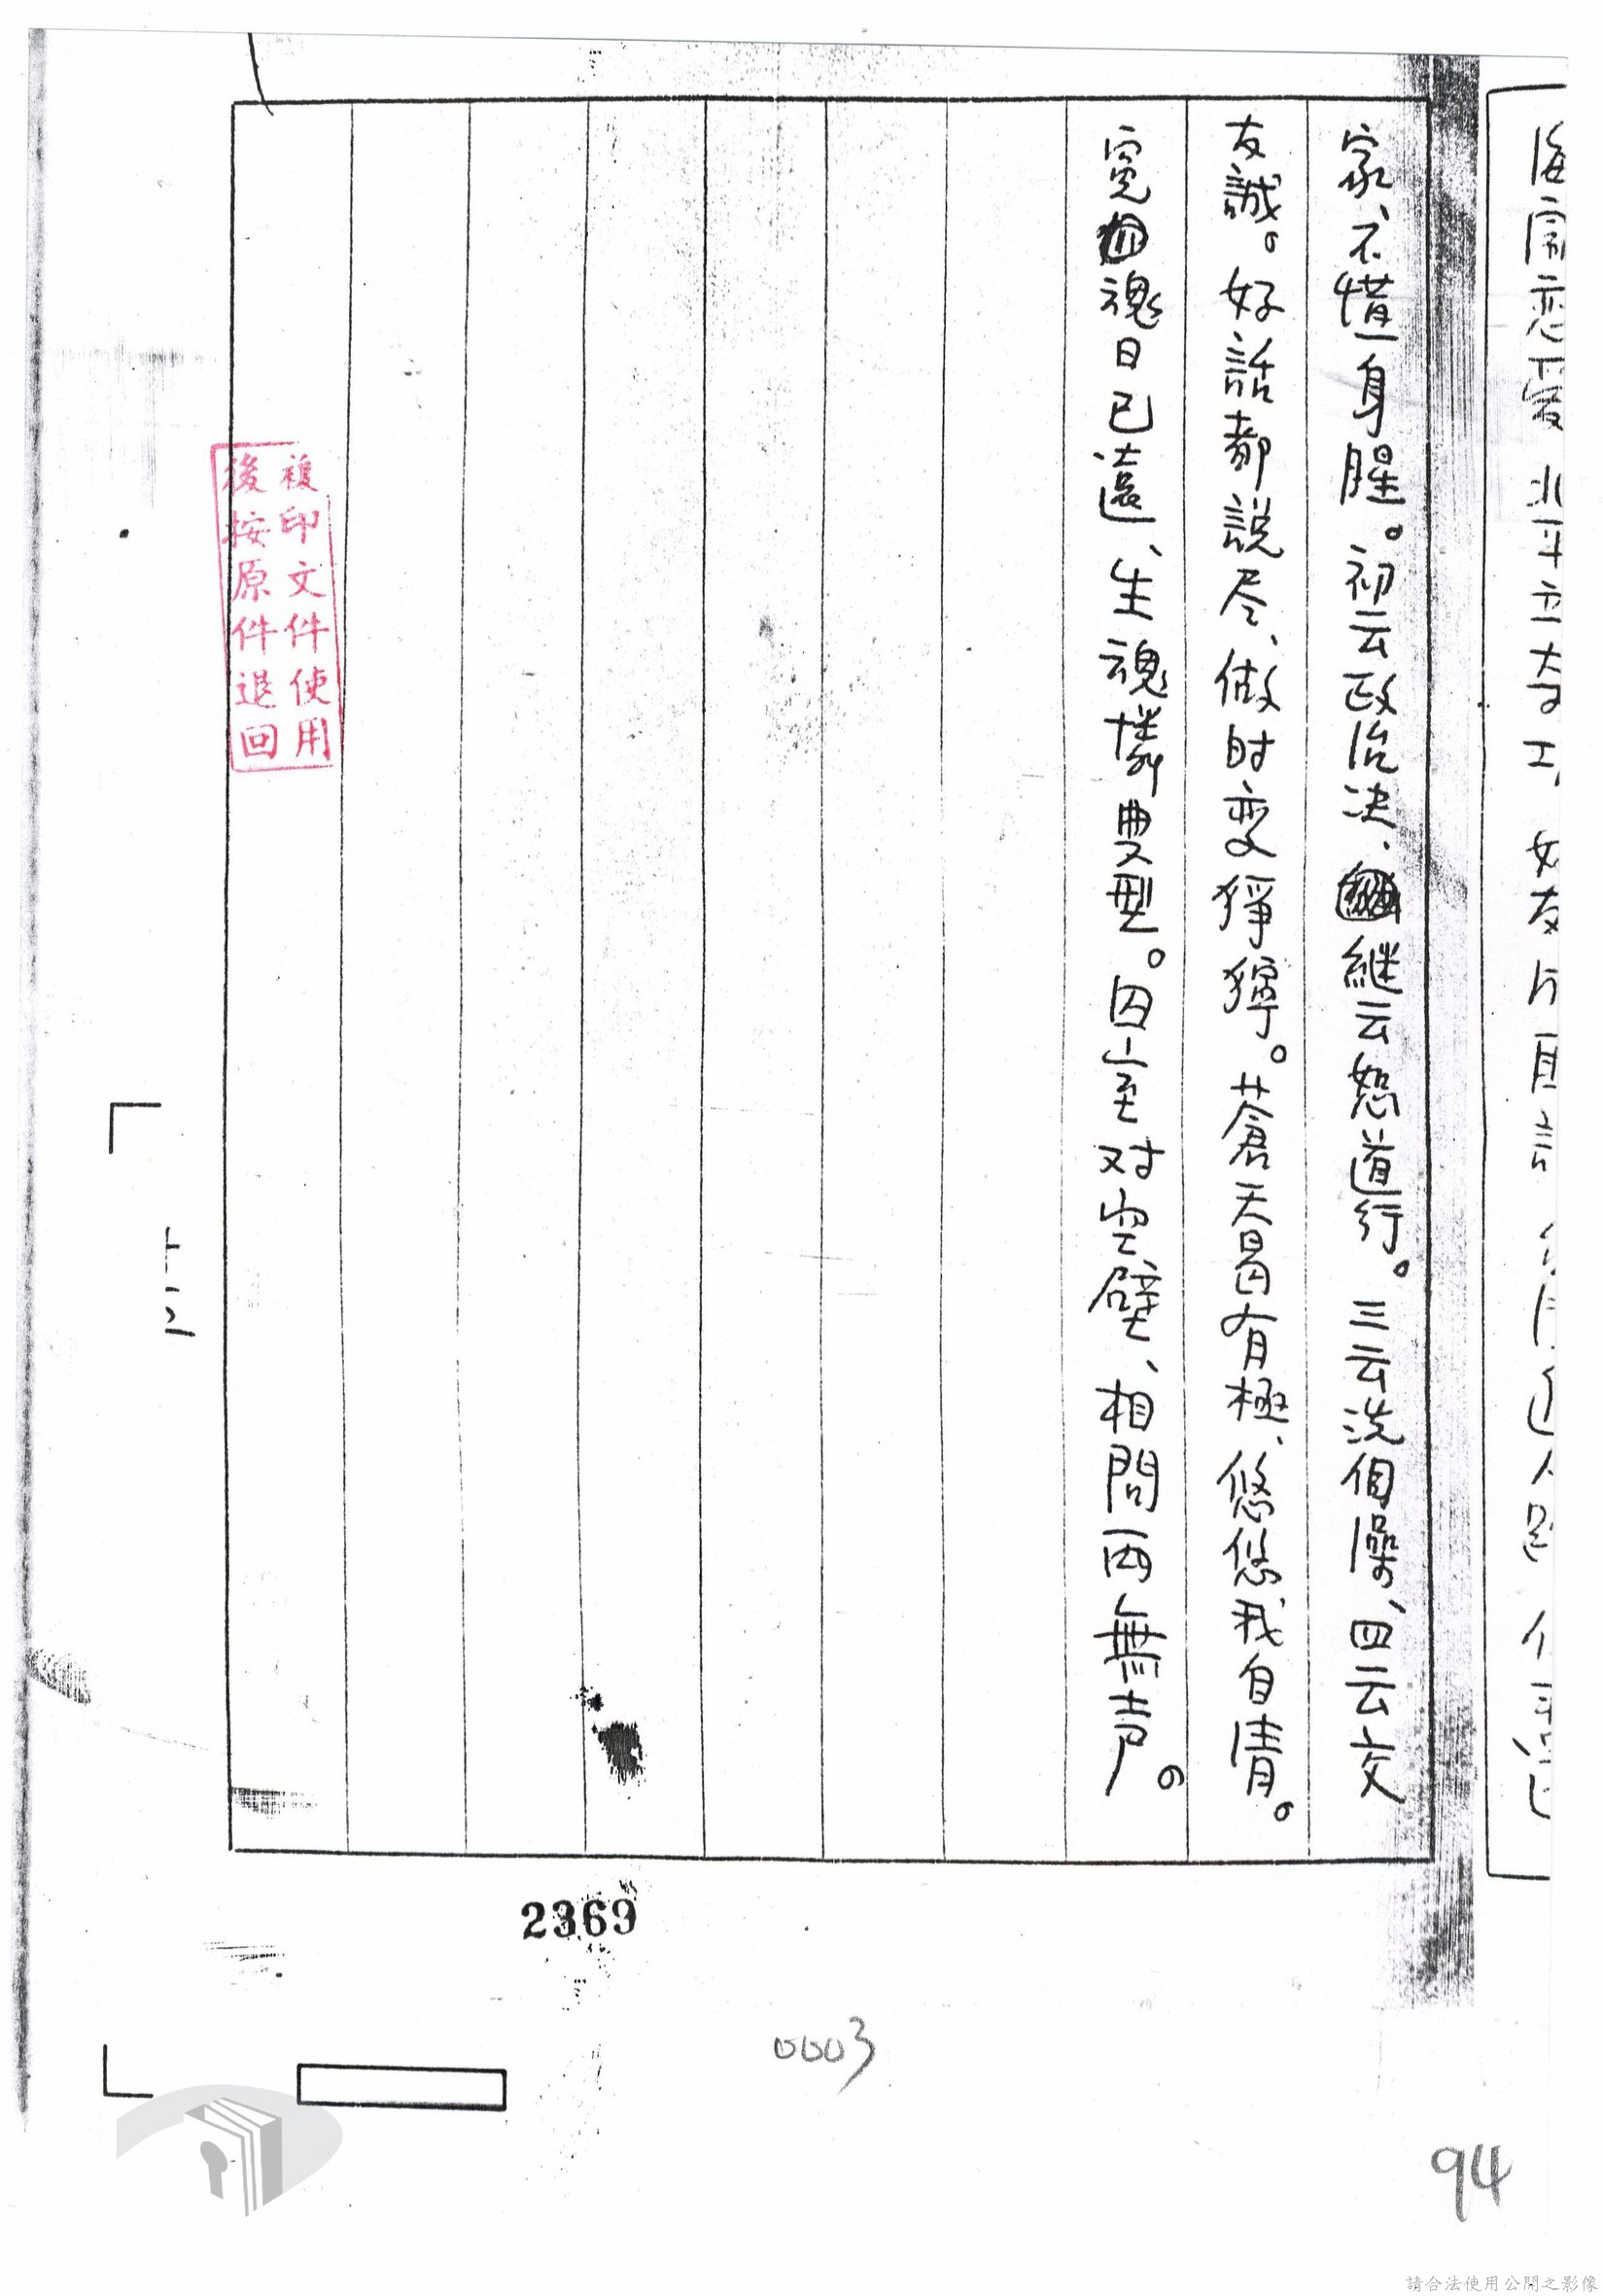 家、不慣一身腥。初云政治决、継云恕道行。三云洗個澡、四云交
友誠。好話都說尽、做时变猙獰。蒼天曷有極、悠悠我自清。
冤魂日已遠、生魂憐典型。囚室对空壁、相問两無声。
複印文件使用
後按原件退回
2369
0003
94
請合法使用公開之影像